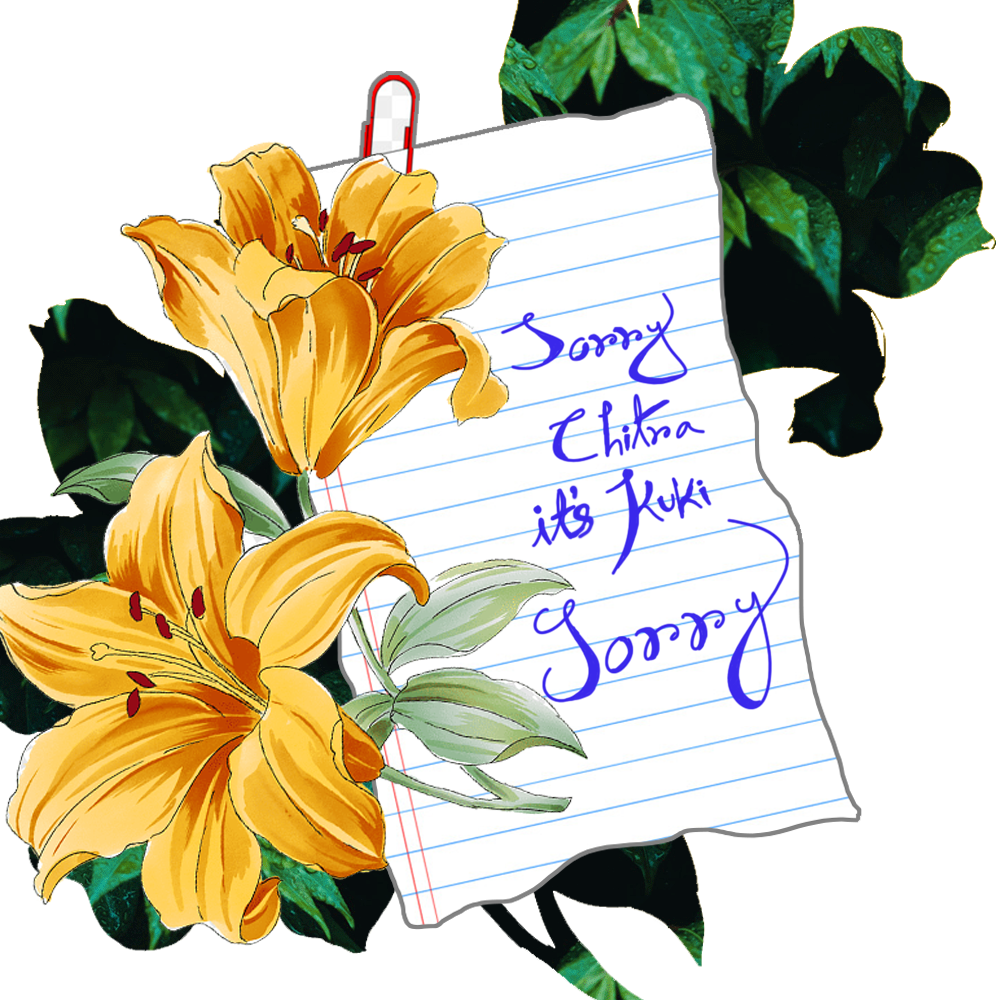 Sorry
Chitra
it's Kuki
Sorry